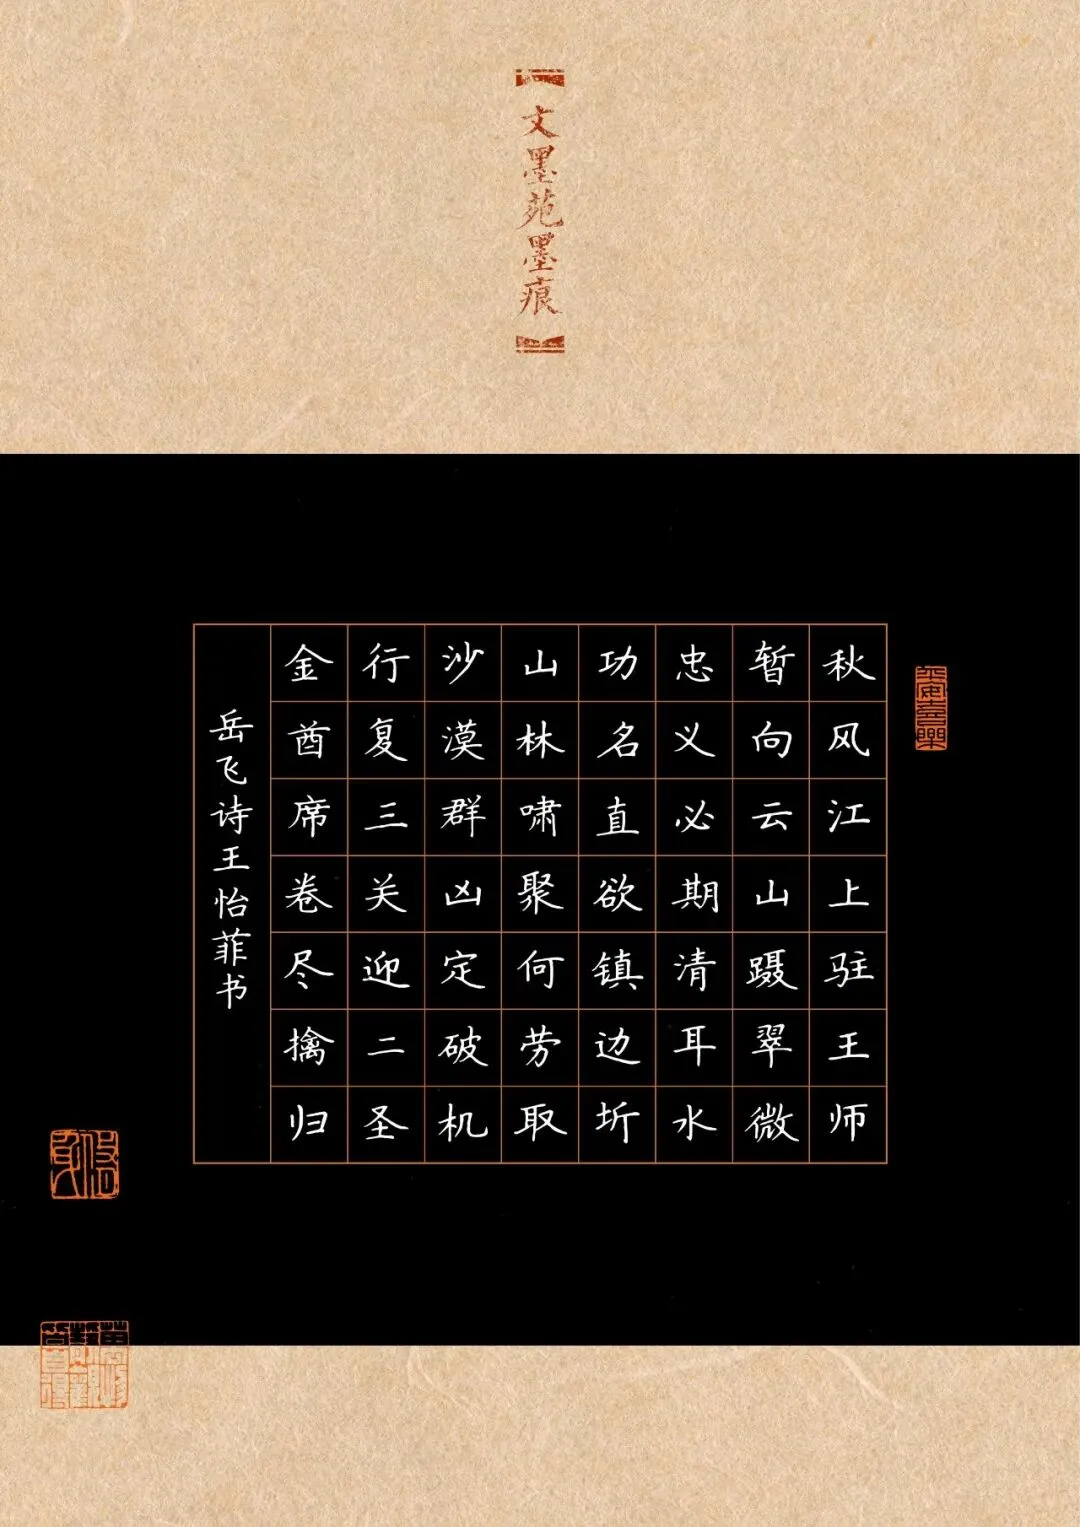 【文墨苑墨痕】
秋风江上驻王师
暂向云山蹑翠微
忠义必期清耳水
功名直欲镇边圻
山林啸聚何劳取
沙漠群凶定破机
行复三关迎二圣
金酋席卷尽擒归
岳飞诗王怡菲书
平安喜乐